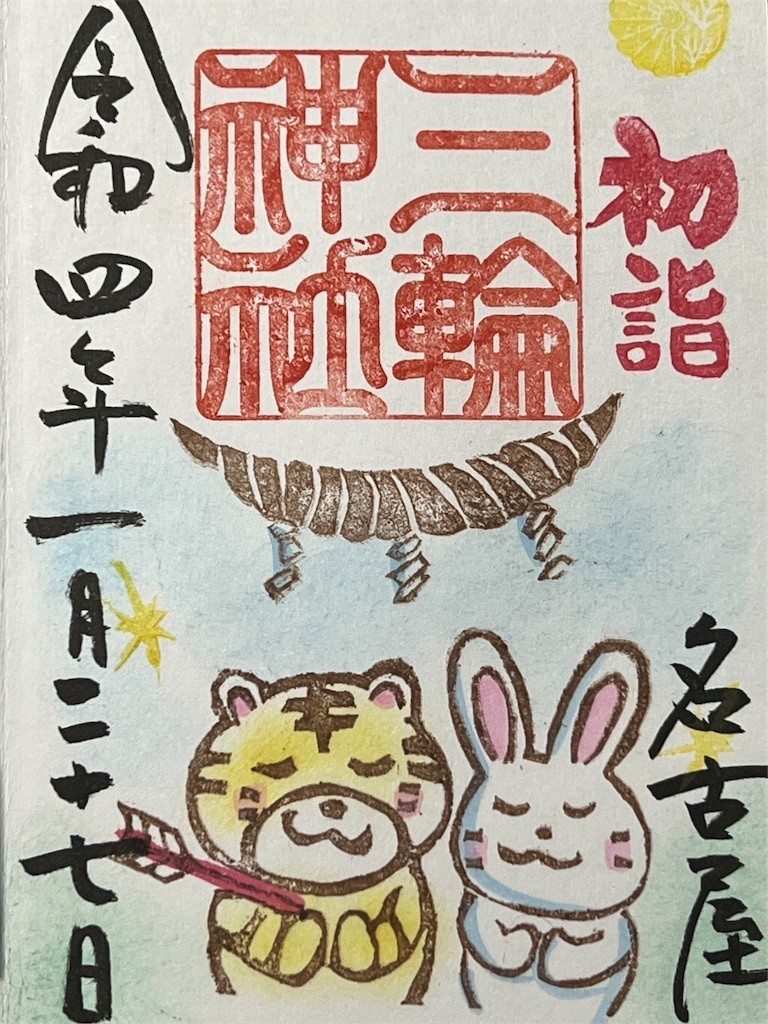 初詣
名古屋
三輪
神社
令和四年一月二十七日